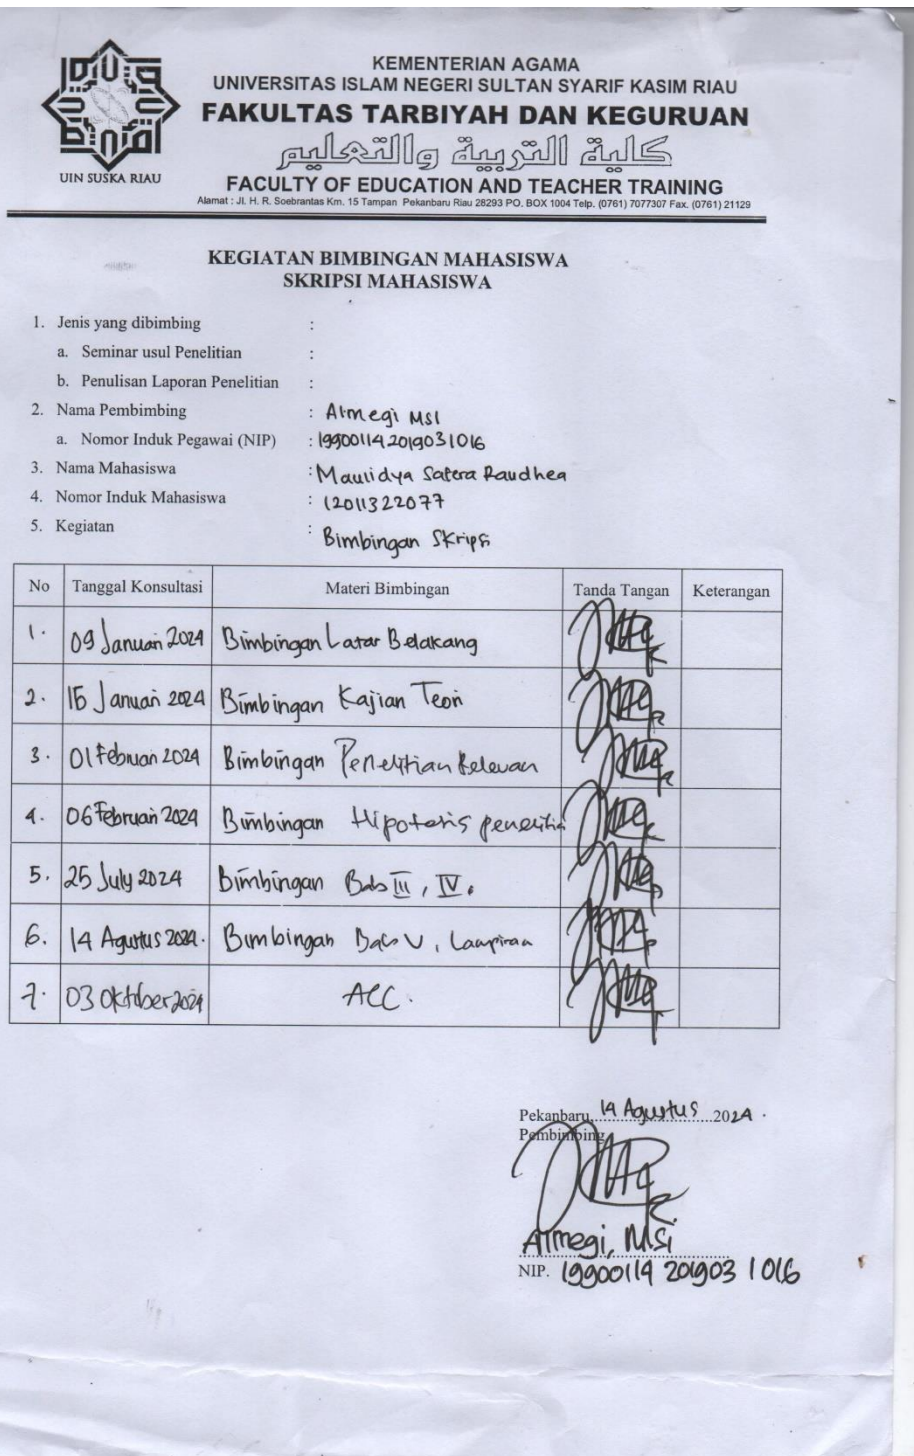 UIN SUSKA RIAU
KEMENTERIAN AGAMA
UNIVERSITAS ISLAM NEGERI SULTAN SYARIF KASIM RIAU
FAKULTAS TARBIYAH DAN KEGURUAN
كلية التربية والتعليم
FACULTY OF EDUCATION AND TEACHER TRAINING
Alamat : Jl. H. R. Soebrantas Km. 15 Tampan Pekanbaru Riau 28293 PO. BOX 1004 Telp. (0761) 7077307 Fax. (0761) 21129
KEGIATAN BIMBINGAN MAHASISWA
SKRIPSI MAHASISWA
1. Jenis yang dibimbing :
a. Seminar usul Penelitian :
b. Penulisan Laporan Penelitian :
2. Nama Pembimbing : Almegi MSi
a. Nomor Induk Pegawai (NIP) : 199001142019031016
3. Nama Mahasiswa : Maulidya Satera Raudhea
4. Nomor Induk Mahasiswa : 12011322077
5. Kegiatan : Bimbingan Skripsi
No Tanggal Konsultasi Materi Bimbingan Tanda Tangan Keterangan
1. 09 Januari 2024 Bimbingan Latar Belakang
2. 15 Januari 2024 Bimbingan Kajian Teori
3. 01 Februari 2024 Bimbingan Penelitian Relevan
4. 06 Februari 2024 Bimbingan Hipotesis penelitia
5. 25 July 2024 Bimbingan Bab III, IV.
6. 14 Agustus 2024. Bimbingan Bab V, Lampiran
7. 03 Oktober 2024 ACC.
Pekanbaru, 14 Agustus 2024.
Pembimbing
Almegi, MSi
NIP. 19900114 201903 1 016